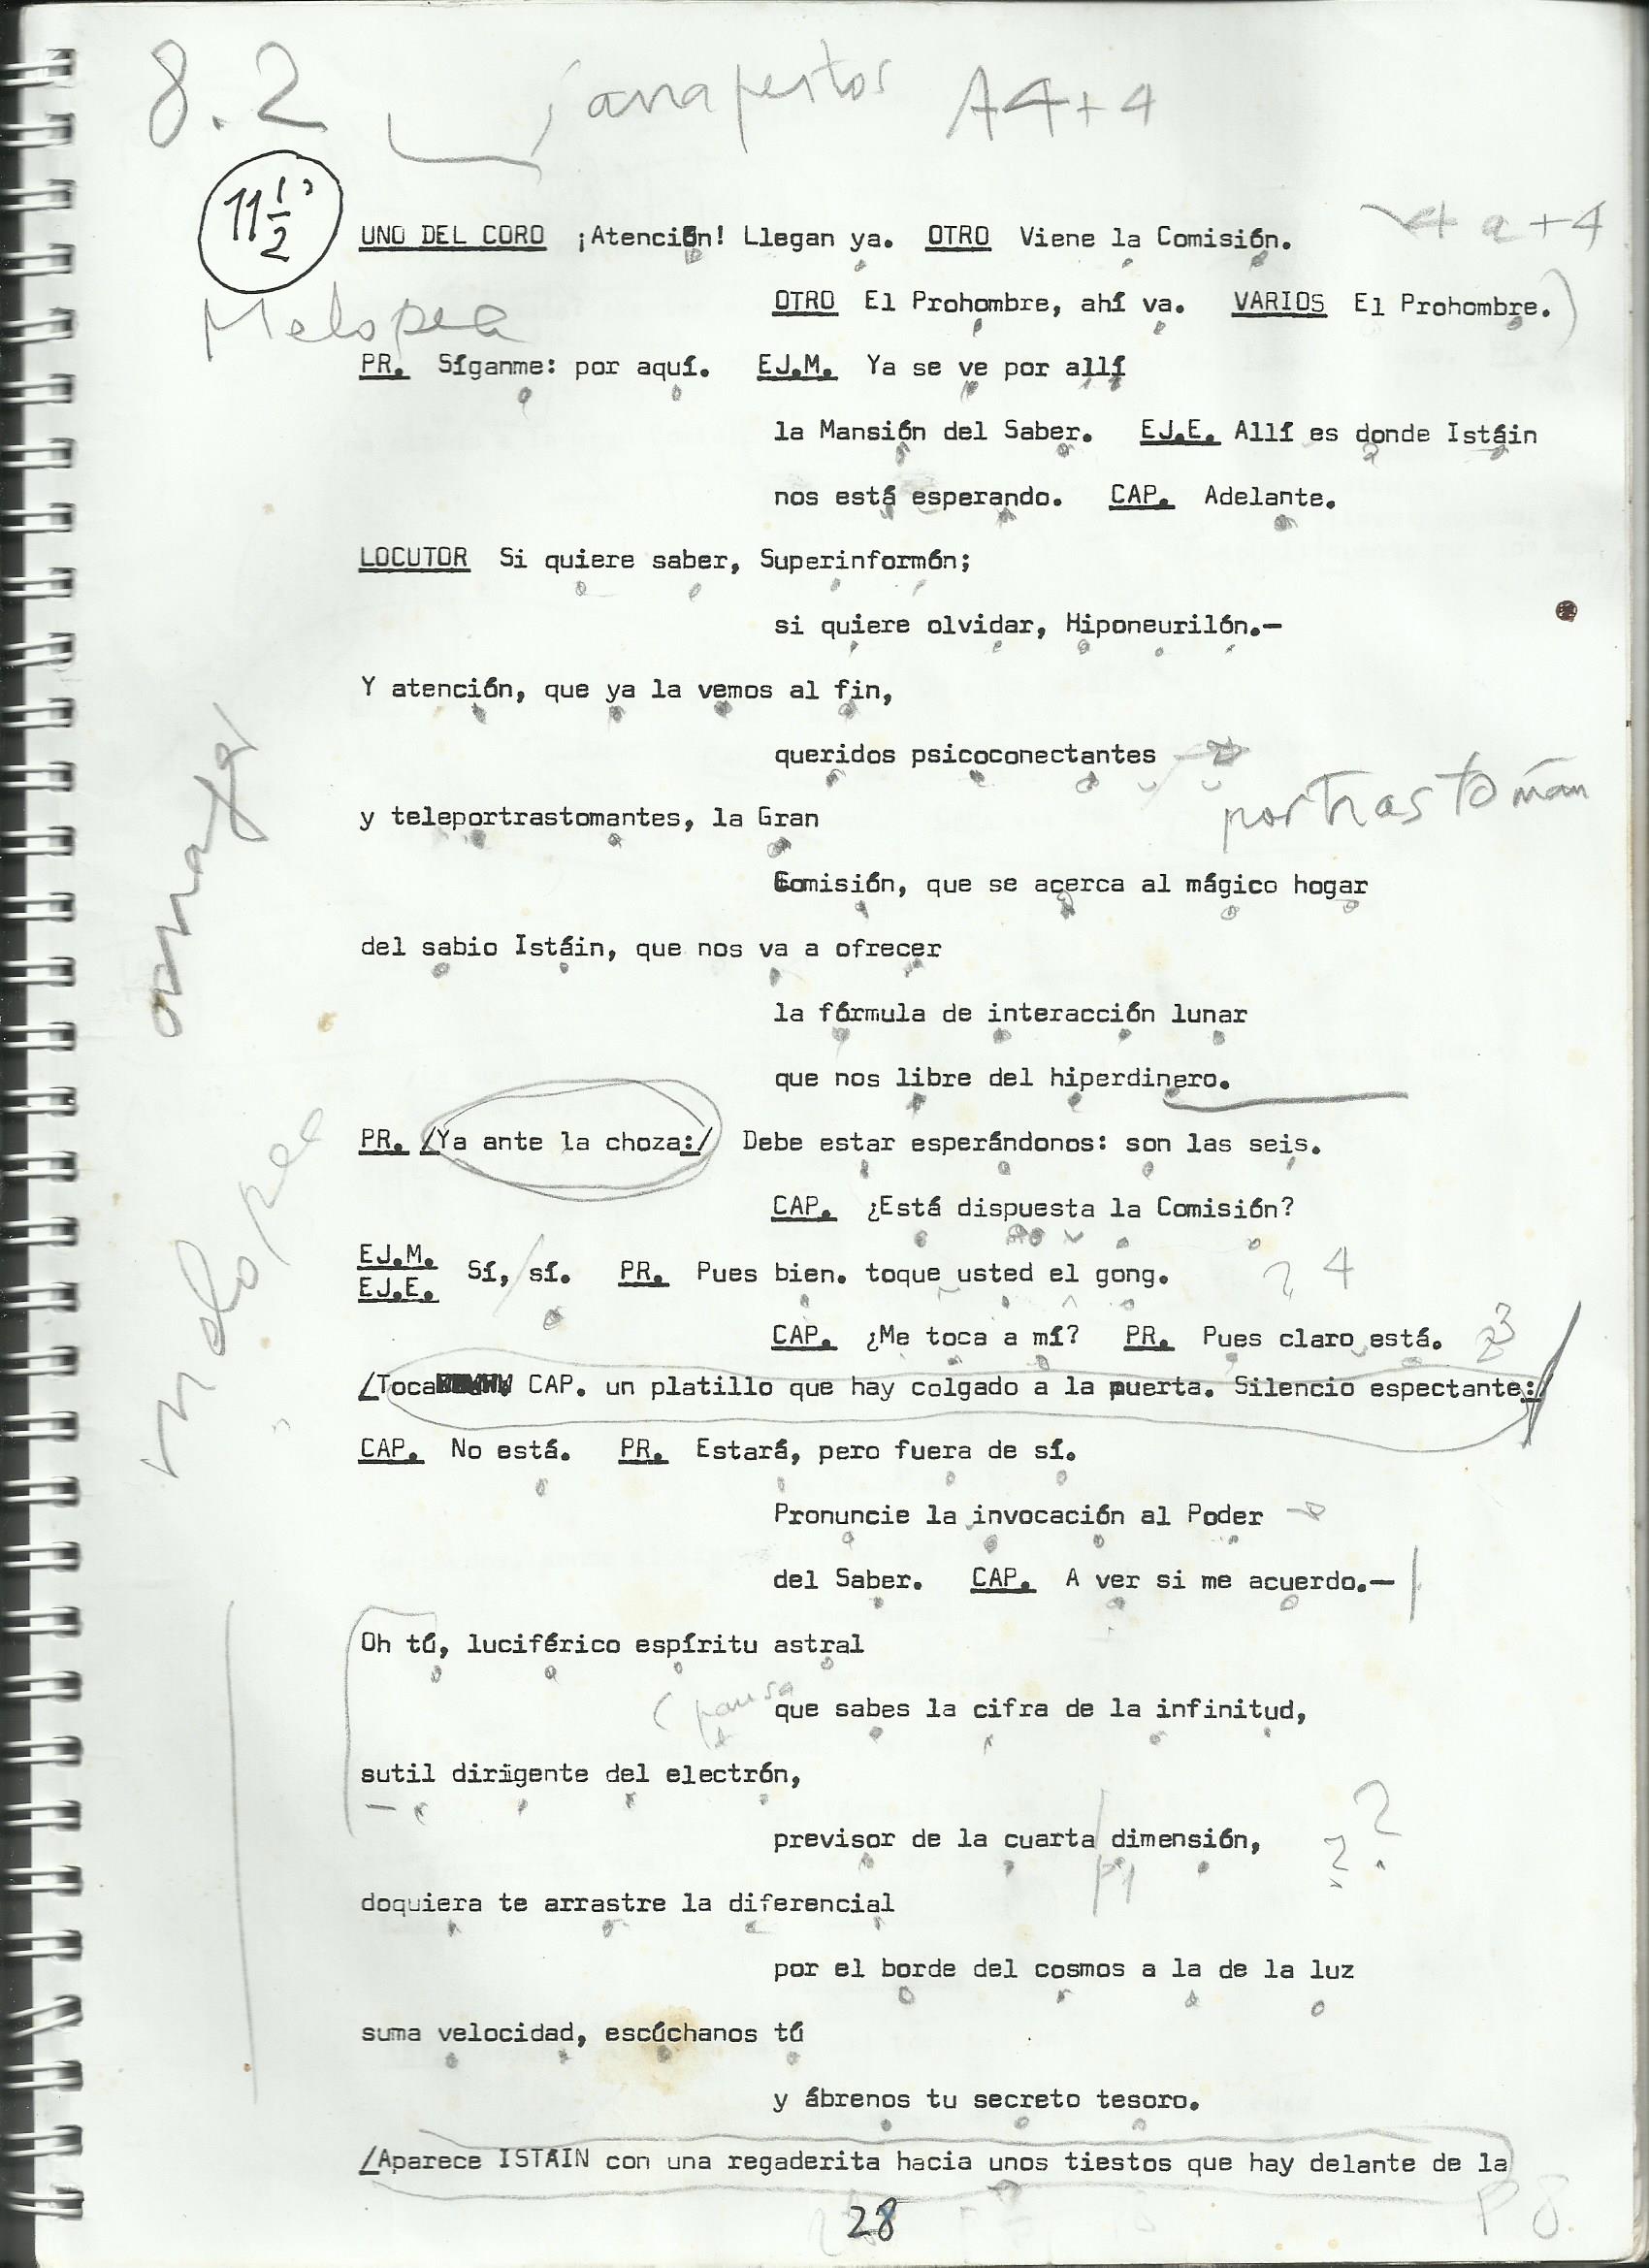 8.2 anapestos A4+4
11½
UNO DEL CORO ¡Atención! Llegan ya. OTRO Viene la Comisión.
4a+4
OTRO El Prohombre, ahí va. VARIOS El Prohombre.
Melopea
PR. Síganme: por aquí. EJ.M. Ya se ve por allí
la Mansión del Saber. EJ.E. Allí es donde Istáin
nos está esperando. CAP. Adelante.
LOCUTOR Si quiere saber, Superinformón;
si quiere olvidar, Hiponeurilón.—
Y atención, que ya la vemos al fin,
queridos psicoconectantes
portrastoman
y teleportrastomantes, la Gran
Comisión, que se acerca al mágico hogar
del sabio Istáin, que nos va a ofrecer
la fórmula de interacción lunar
que nos libre del hiperdinero.
PR. /Ya ante la choza:/ Debe estar esperándonos: son las seis.
melopea
CAP. ¿Está dispuesta la Comisión?
EJ.M.
EJ.E. Sí, sí. PR. Pues bien. toque usted el gong.
? 4
CAP. ¿Me toca a mí? PR. Pues claro está.
3
/Toca CAP. un platillo que hay colgado a la puerta. Silencio espectante:/
CAP. No está. PR. Estará, pero fuera de sí.
Pronuncie la invocación al Poder
del Saber. CAP. A ver si me acuerdo.—
Oh tú, luciférico espíritu astral
(pausa
que sabes la cifra de la infinitud,
sutil dirigente del electrón,
previsor de la cuarta dimensión,
? ?
doquiera te arrastre la diferencial
por el borde del cosmos a la de la luz
suma velocidad, escúchanos tú
y ábrenos tu secreto tesoro.
/Aparece ISTAIN con una regaderita hacia unos tiestos que hay delante de la
28
P8